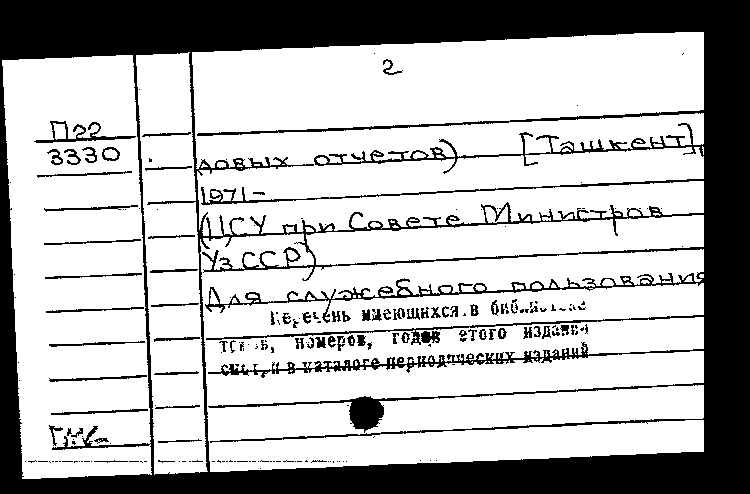 2
П22
3330
довых отчетов). [Ташкент],
1971-
(ЦСУ при Совете Министров
УзССР)
Для служебного пользования
Перечень имеющихся в библиотеке
томов, номеров, годов этого издания
смотри в каталоге периодических изданий